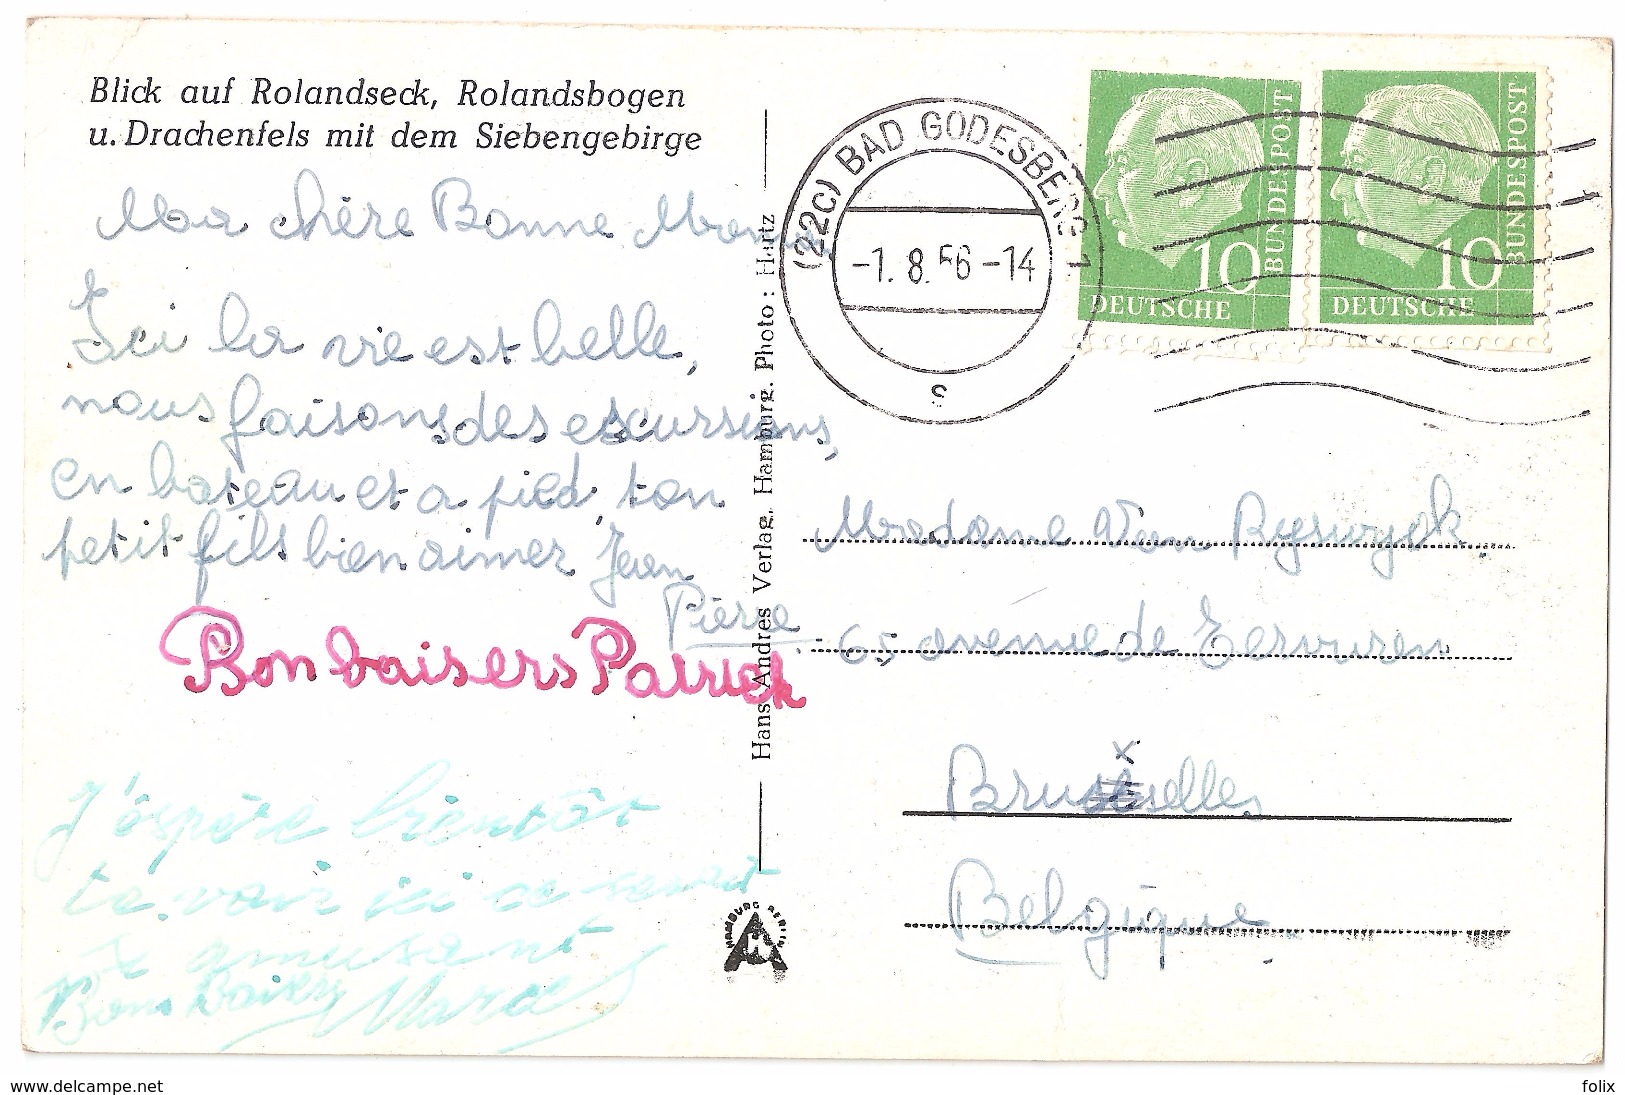 Blick auf Rolandseck, Rolandsbogen
u. Drachenfels mit dem Siebengebirge
Ma chère Bonne Maman
Ici la vie est belle,
nous faisons des escursions,
en bateau et a pied, ton
petit fils bien aimer Jean
Pierre
Bon baisers Patrick
J'éspère bientôt
te voir ici ce serait
amusant
Bons Baisers Marcel
Hans Andres Verlag, Hamburg. Photo: Hartz
HAMBURG BERLIN
(22c) BAD GODESBERG 1
-1.8.56-14
s
10
BUNDESPOST
DEUTSCHE
10
BUNDESPOST
DEUTSCHE
Madame Van Ryswyck
65 avenue de Tervuren
x
Bruxelles
Belgique
www.delcampe.net
folix